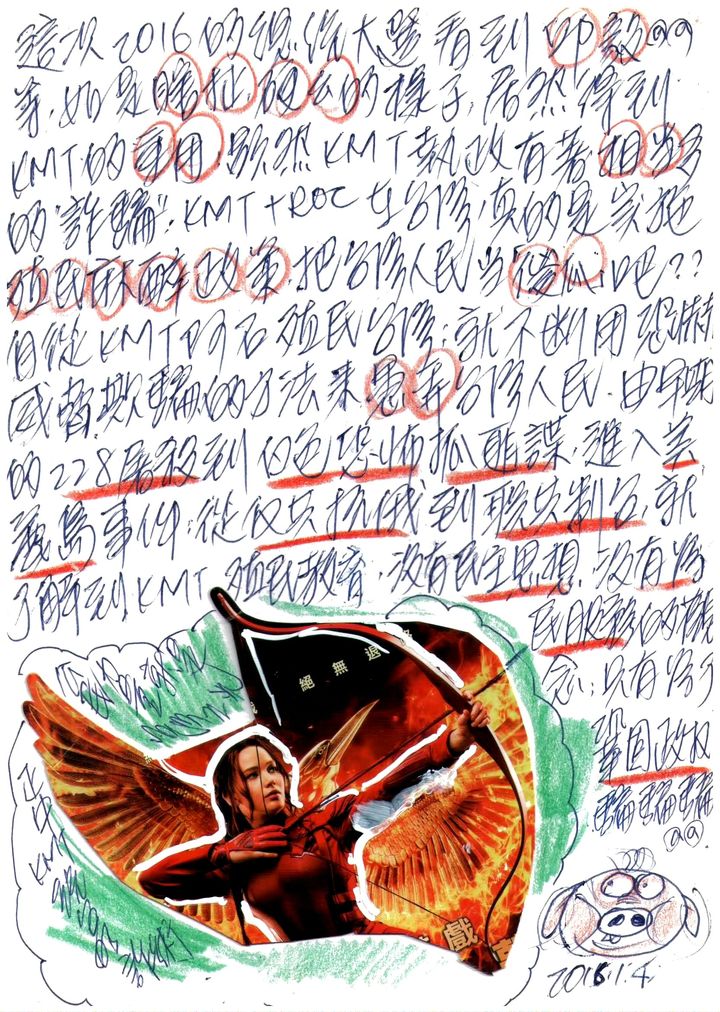 這次2016的總統大選看到邱毅@@
等,如是瞎扯硬幺的樣子,居然得到
KMT的重用,雖然KMT執政有著相當多
的"詐騙",KMT+ROC在台灣,真的是實施
殖民 政策,把台灣人民當傻瓜吧??
自從KMT 殖民台灣,就不斷用恐怖
威脅欺騙的方法來愚弄台灣人民.由早晚
的228屠殺到白色恐怖抓匪諜,進入美
麗島事件,從反共抗俄到聯共制台,就
了解到KMT殖民教育,沒有民主思想,沒有為
民服務的概
念,只有為了
鞏固政权
騙騙騙
@@
絕無退
正中
KMT
戲
2016.1.4.